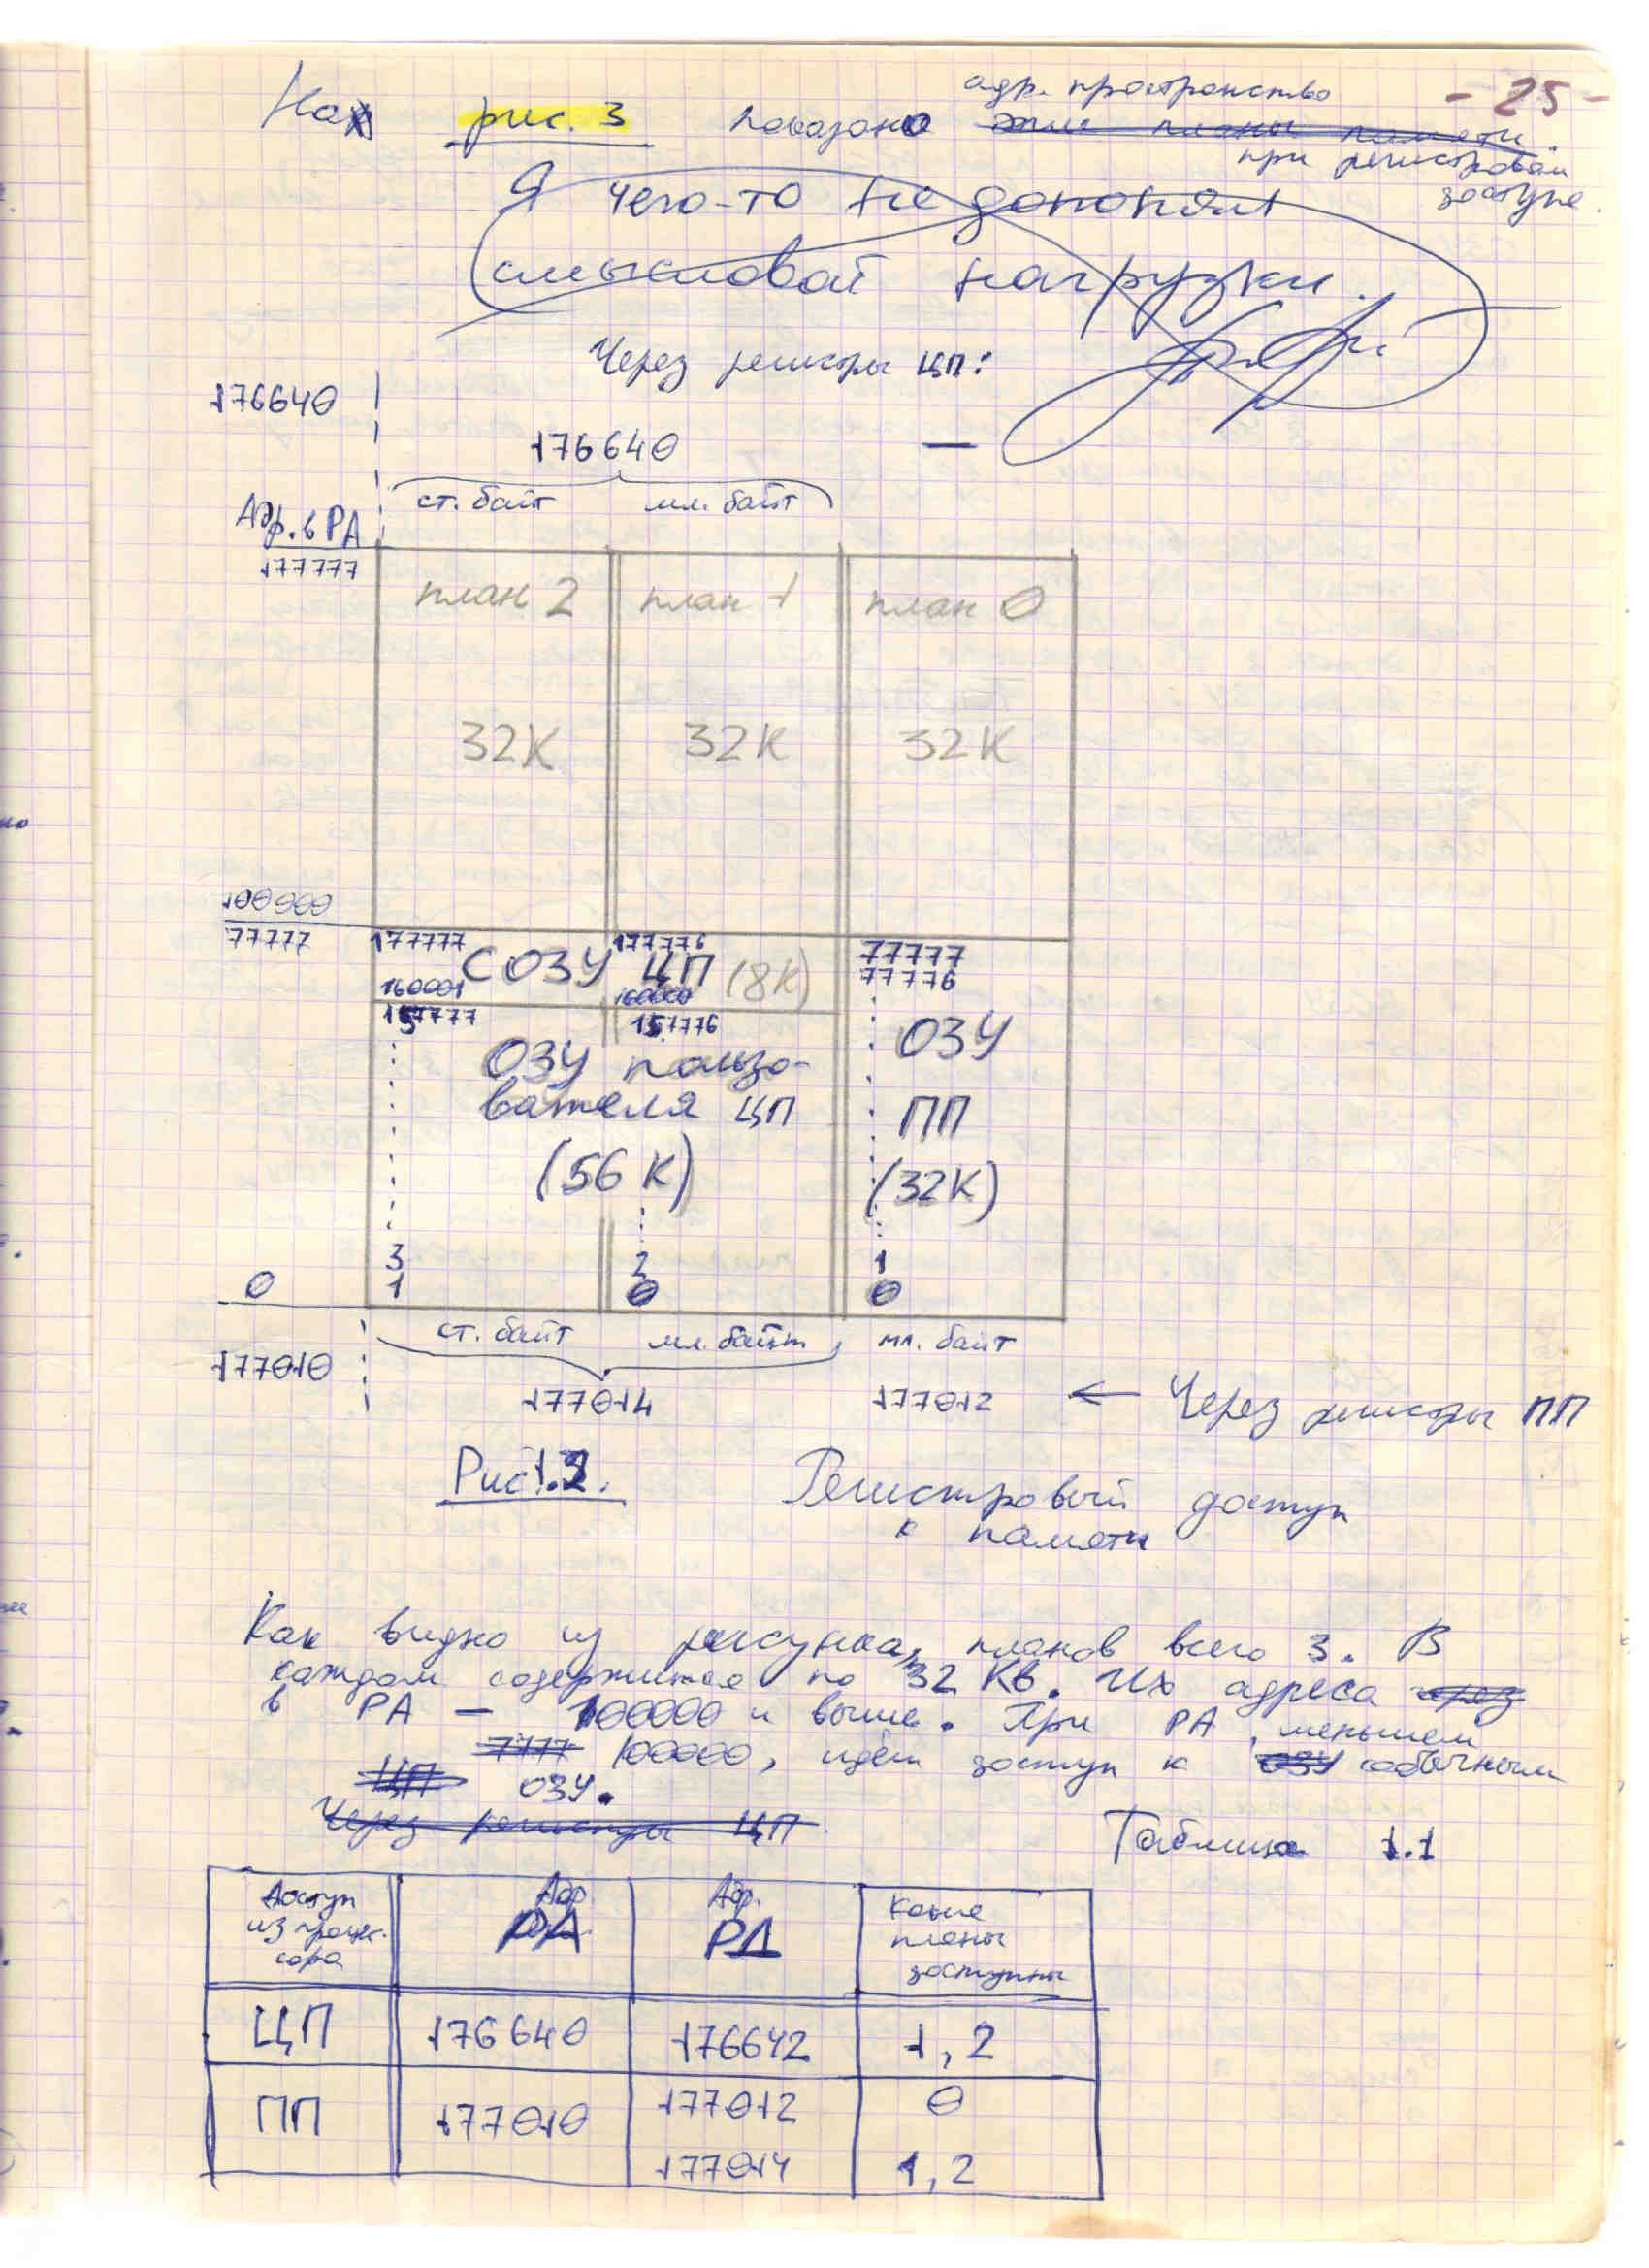 - 25 -
адр. пространство
На рис. 3 показано эти планы памяти.
при регистровом
доступе.
Я чего-то не допонял
смысловой нагрузки.
Через регистры ЦП:
176640
176640 —
ст. байт мл. байт
Адр. в РА
177777
план 2 план 1 план 0
32К 32К 32К
100000
77777 177777 177776 77777
СОЗУ ЦП (8К) 77776
160001 160000
157777 157776
ОЗУ пользо- ОЗУ
вателя ЦП ПП
(56 К) (32К)
3 2 1
0 1 0 0
ст. байт мл. байт мл. байт
177010
177014 177012 ← Через регистры ПП
Рис 1.3. Регистровый доступ
к памяти
Как видно из рисунка, планов всего 3. В
каждом содержится по 32 Кб. Их адреса через
в РА — 100000 и выше. При РА, меньшем
7777 100000, идёт доступ к ОЗУ обычным
ЦП ОЗУ.
Через регистры ЦП
Таблица 1.1
Доступ Адр. Адр. Какие
из процес- РА РД планы
сора доступны
ЦП 176640 176642 1, 2
ПП 177010 177012 0
177014 1, 2